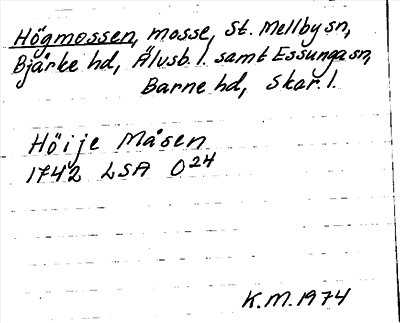 Högmossen, mosse, St. Mellby sn,
Bjärke hd, Älvsb. l. samt Essunga sn,
Barne hd, Skar. l.
Höije Måsen
1742 LSA O24
K.M. 1974